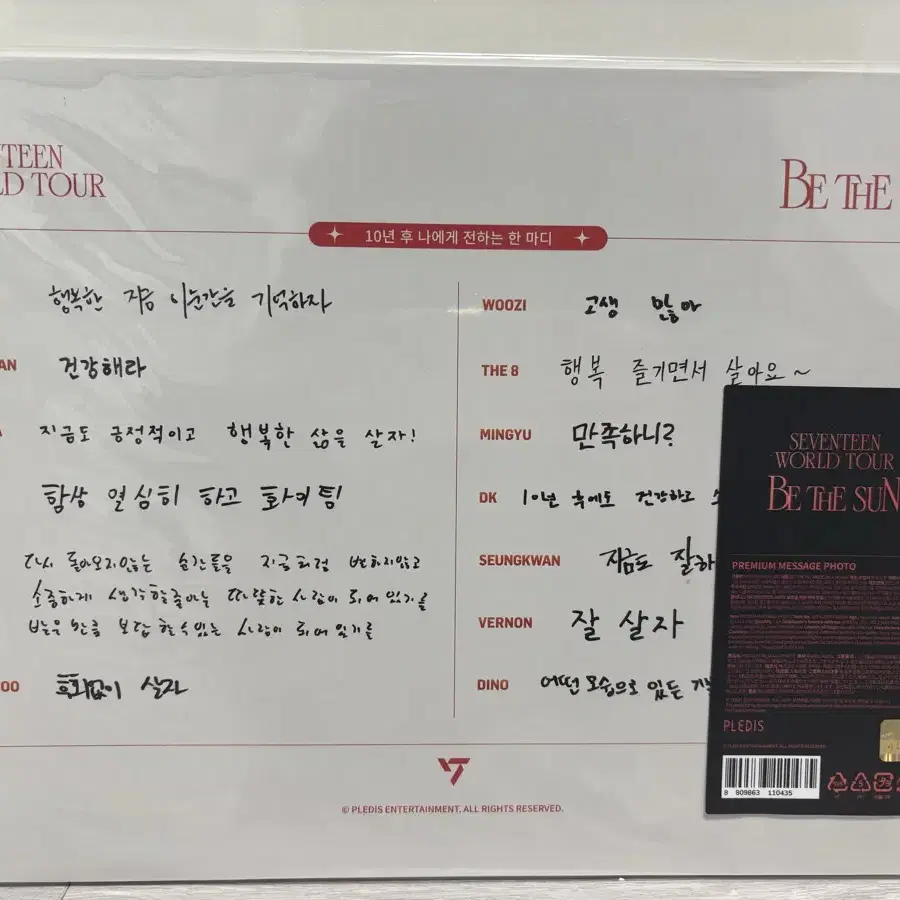 TEEN
LD TOUR
BE THE
10년 후 나에게 전하는 한 마디
행복한 지금 이순간을 기억하자
AN 건강해라
지금도 긍정적이고 행복한 삶을 살자!
항상 열심히 하고 화이팅
다시 돌아오지않는 순간들을 지금처럼 변하지않고
소중하게 생각할줄아는 따뜻한 사람이 되어 있기를
받은 만큼 보답할수있는 사람이 되어 있기를
OO 후회없이 살자
WOOZI 고생 많아
THE 8 행복 즐기면서 살아요~
MINGYU 만족하니?
DK 10년 후에도 건강하고
SEUNGKWAN 지금도 잘하
VERNON 잘 살자
DINO 어떤 모습으로 있든
© PLEDIS ENTERTAINMENT. ALL RIGHTS RESERVED.
SEVENTEEN
WORLD TOUR
BE THE SUN
PREMIUM MESSAGE PHOTO
PLEDIS
© PLEDIS ENTERTAINMENT. ALL RIGHTS RESERVED.
8 809863 110435